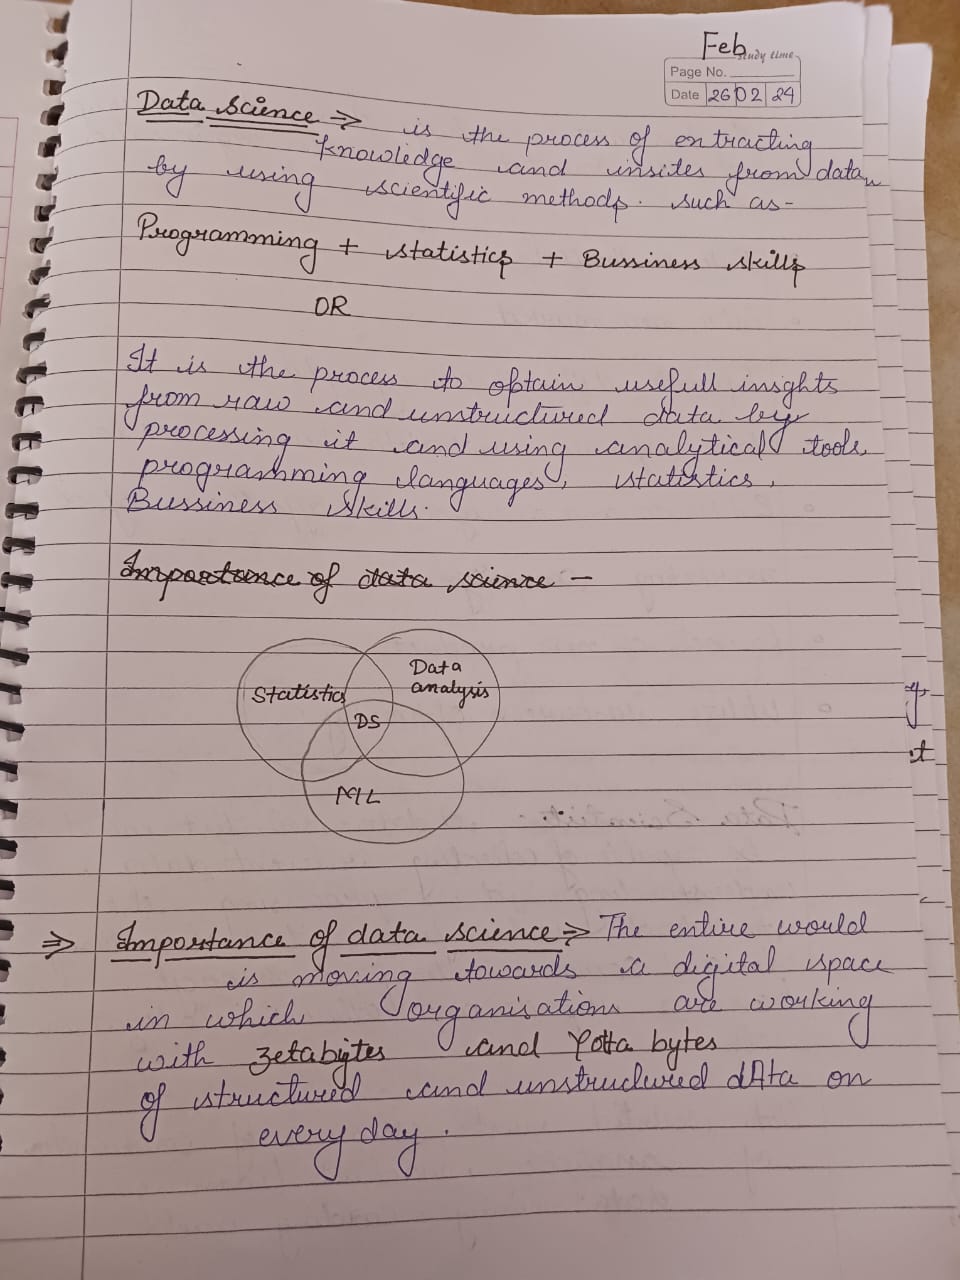 Feb
study time
Page No.
Date 26 02 24
Data science ⇒ is the process of entracting
knowledge and insites from data
by using scientific methods. such as-
Programming + statistics + Bussiness skills
OR
It is the process to optain usefull insghts
from raw and unstructured data by
processing it and using analytical tools,
programming languages, statistics,
Bussiness skills.
Importance of data science –
Statistics
Data
analysis
DS
ML
⇒ Importance of data science ⇒ The entire would
is moving towards a digital space
in which organisations are working
with zetabytes and Yotta bytes
of structured and unstructured dAta on
every day.